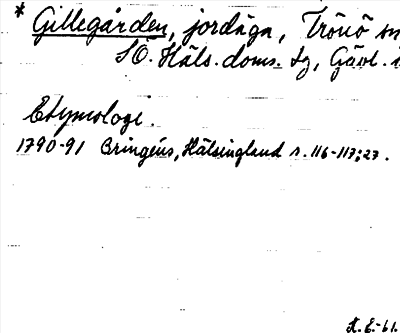 * Gillegården, jordäga, Trönö sn
SÖ. Häls. doms. sg, Gävl.
Etymologi.
1790-91 Bringéus, Hälsingland s. 116-117; 27.
K. E.-61.